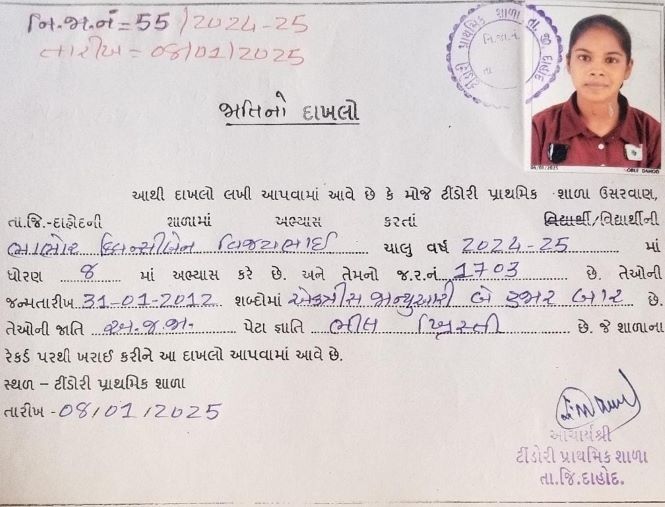 નિ.જા.નં = 55 / 2024-25
તારીખ = 08/01/2025
ટીંડોરી પ્રાથમિક શાળા તા.જી.દાહોદ
જાતિનો દાખલો
06/01/2025 NOBLE DAHOD
આથી દાખલો લખી આપવામાં આવે છે કે મોજે ટીંડોરી પ્રાથમિક શાળા ઉસરવાણ,
તા.જિ.-દાહોદની શાળામાં અભ્યાસ કરતાં વિદ્યાર્થી/વિદ્યાર્થીની
ભાભોર પ્રિન્સીબેન વિજયભાઈ ચાલુ વર્ષ 2024-25 માં
ધોરણ 8 માં અભ્યાસ કરે છે. અને તેમનો જ.ર.નં. 1703 છે. તેઓની
જન્મતારીખ 31-01-2012 શબ્દોમાં એકત્રીસ જાન્યુઆરી બે હજાર બાર છે.
તેઓની જાતિ અ.જ.જા. પેટા જ્ઞાતિ ભીલ ખ્રિસ્તી છે. જે શાળાના
રેકર્ડ પરથી ખરાઈ કરીને આ દાખલો આપવામાં આવે છે.
સ્થળ – ટીંડોરી પ્રાથમિક શાળા
તારીખ - 08/01/2025
આચાર્યશ્રી
ટીંડોરી પ્રાથમિક શાળા
તા.જિ.દાહોદ.